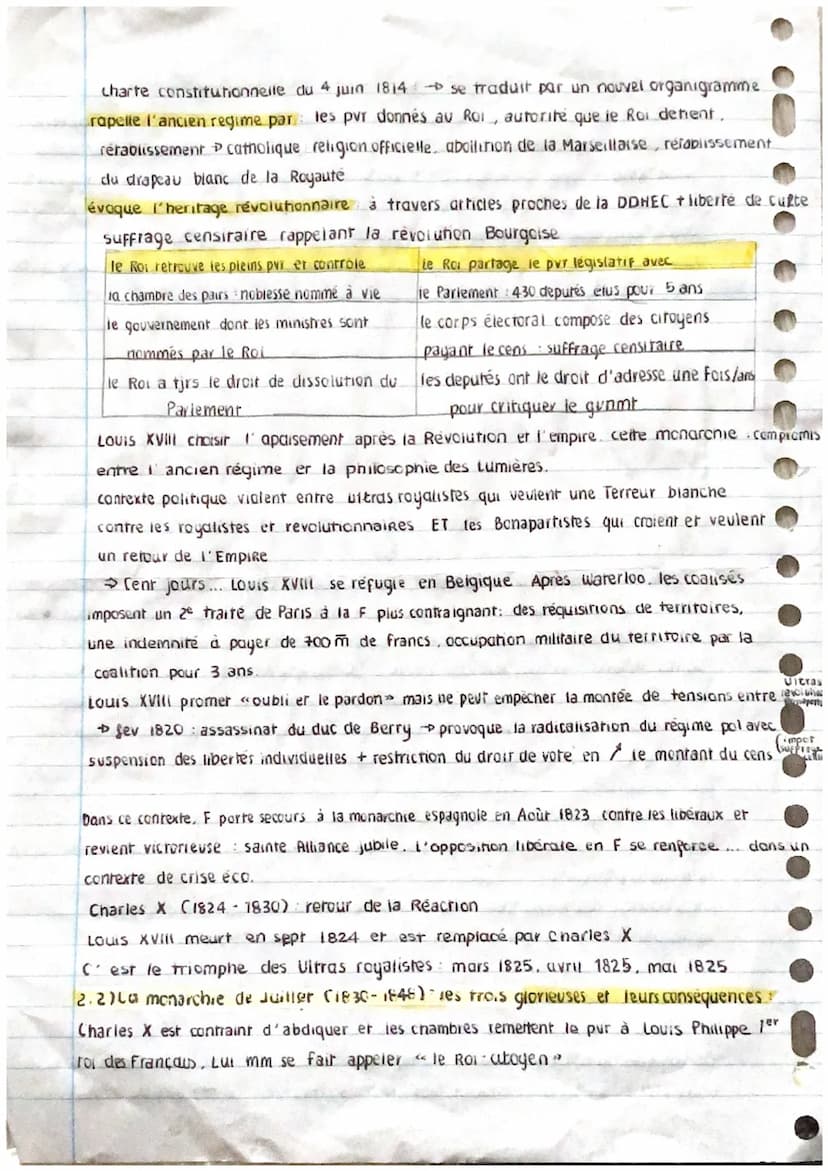 Charte constitutionnelle du 4 juin 1814 : → se traduit par un nouvel organigramme
rapelle l'ancien regime par : les pvr donnés au Roi, autorité que le Roi detient,
rétablissement → catholique religion officielle, abolition de la Marseillaise, rétablissement
du drapeau blanc de la Royauté
évoque l'heritage révolutionnaire à travers articles proches de la DDHEC + liberté de culte
suffrage censitaire rappelant la révolution Bourgoise
le Roi retrouve les pleins pvr et controle
Le Roi partage le pvr législatif avec
la chambre des pairs : noblesse nommé à vie
le Parlement : 430 deputés elus pour 5 ans
le gouvernement dont les ministres sont
nommés par le Roi
le corps électoral compose des citoyens
payant le cens : suffrage censitaire
le Roi a tjrs le droit de dissolution du
Parlement
les deputés ont le droit d'adresse une fois/ans
pour critiquer le gvnmt
Louis XVIII choisir l'apaisement après la Révolution et l'empire. cette monarchie : compromis
entre l'ancien régime et la philosophie des Lumières.
contexte politique violent entre ultras royalistes qui veulent une Terreur blanche
contre les royalistes et revolutionnaires ET les Bonapartistes qui croient et veulent
un retour de l'Empire
⇒ Cent jours... Louis XVIII se réfugie en Belgique. Après Waterloo, les coalisés
imposent un 2e traité de Paris à la F plus contraignant: des réquisitions de territoires,
une indemnité à payer de 700 m de francs, occupation militaire du territoire par la
coalition pour 3 ans.
Louis XVIII promet «oubli et le pardon» mais ne peut empêcher la montée de tensions entre
Ultras
→ fev 1820 : assassinat du duc de Berry → provoque la radicalisation du régime pol avec
(impot
suspension des libertés individuelles + restriction du droit de vote en ↗ le montant du cens
Dans ce contexte, F porte secours à la monarchie espagnole en Août 1823 contre les libéraux et
revient victorieuse : sainte Alliance jubile. L'opposition libérale en F se renforce ... dans un
contexte de crise éco.
Charles X (1824 - 1830) : retour de la Réaction
Louis XVIII meurt en sept 1824 et est remplacé par Charles X
C'est le triomphe des Ultras royalistes : mars 1825, avril 1825, mai 1825
2.2) La monarchie de Juillet (1830-1848) : les trois glorieuses et leurs conséquences :
Charles X est contraint d'abdiquer et les chambres remettent le pvr à Louis Philippe 1er
roi des Français. Lui mm se fait appeler "le Roi-citoyen"